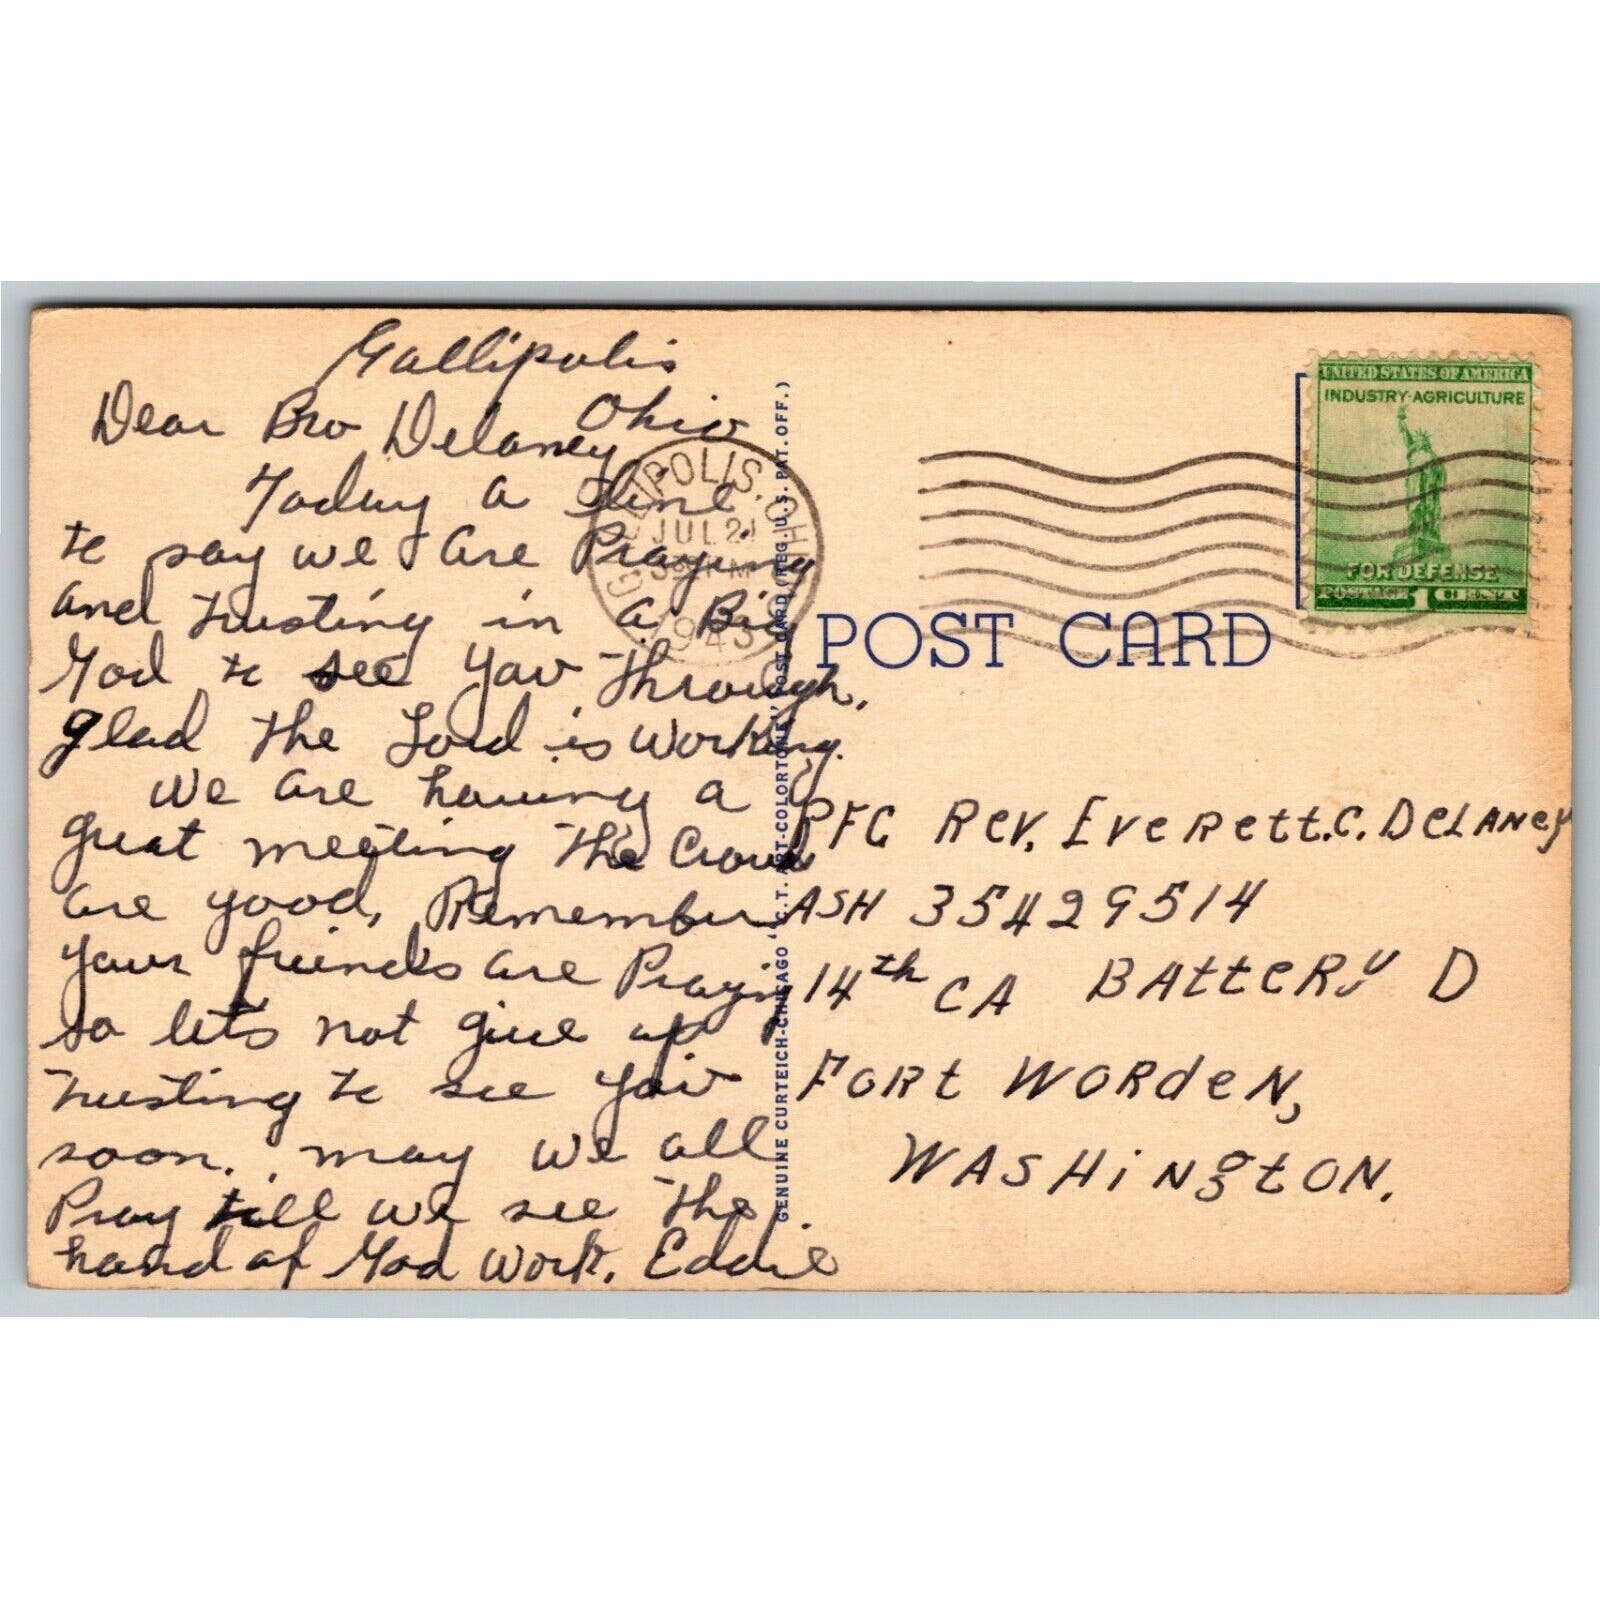 Gallipolis
Ohio
Dear Bro Delaney
Today a line
to say we are Praying
and trusting in a Big
God to see you through,
glad the Lord is working.
We are having a
great meeting the Crowd
are good, Remember
your friends are Praying
so lets not give up
trusting to see you
soon. may we all
Pray till we see the
hand of God work. Eddie
GALLIPOLIS, OHIO
JUL 21
PM
1943
GENUINE CURTEICH-CHICAGO "C.T. ART-COLORTONE" POST CARD (REG. U.S. PAT. OFF.)
POST CARD
UNITED STATES OF AMERICA
INDUSTRY·AGRICULTURE
FOR DEFENSE
POSTAGE 1
PFC Rev. Everett.C. DeLaney
ASH 35429514
14th CA Battery D
Fort Worden,
Washington.